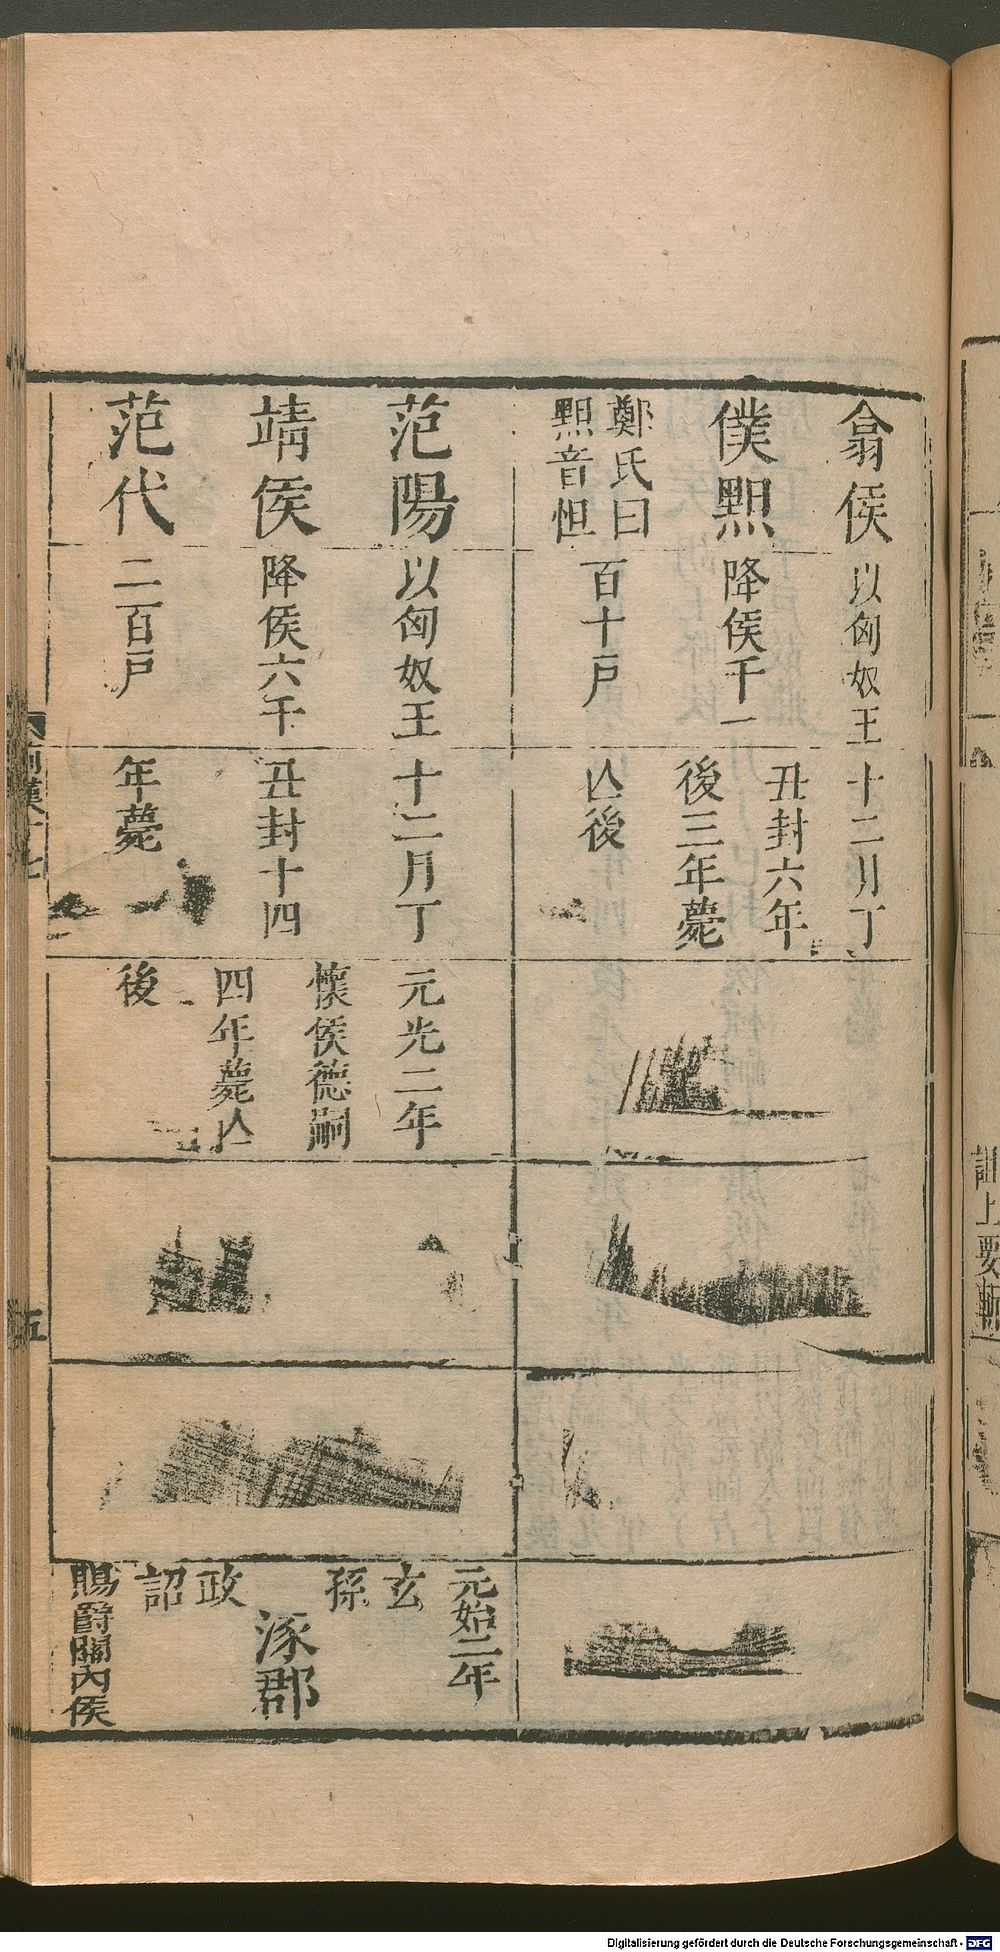 翕侯
僕䵣
鄭氏曰
䵣音怛
以匈奴王
降侯千一
百十戸
十二月丁
丑封六年
後三年薨
亾後
范陽
靖侯
范代
以匈奴王
降侯六千
二百戸
十二月丁
丑封十四
年薨
元光二年
懷侯德嗣
四年薨亾
後
元始二年
玄孫
涿郡
政詔
賜爵關內侯
五
詔上要斬
Digitalisierung gefördert durch die Deutsche Forschungsgemeinschaft - DFG